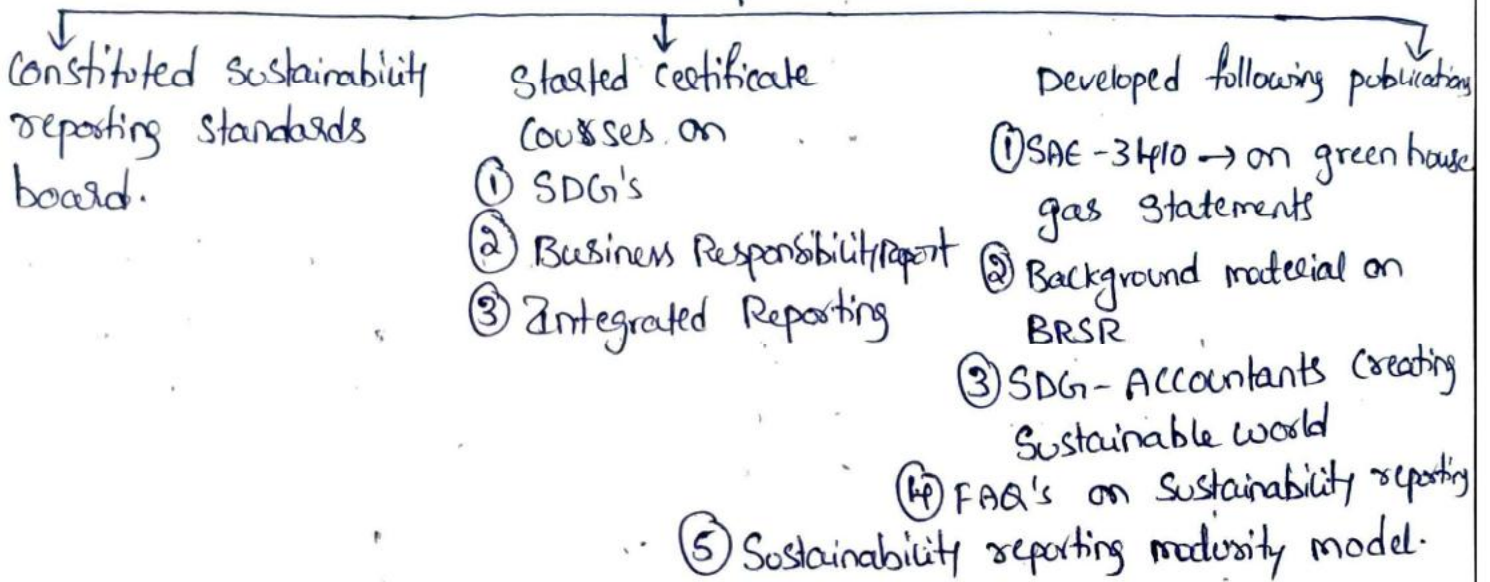 Constituted Sustainability
reporting standards
board.
Started Certificate
Courses on
① SDG's
② Business Responsibility Report
③ Integrated Reporting
Developed following publications
① SAE - 3410 → on green house
gas Statements
② Background material on
BRSR
③ SDG - Accountants Creating
Sustainable world
④ FAQ's on Sustainability reporting
⑤ Sustainability reporting maturity model.